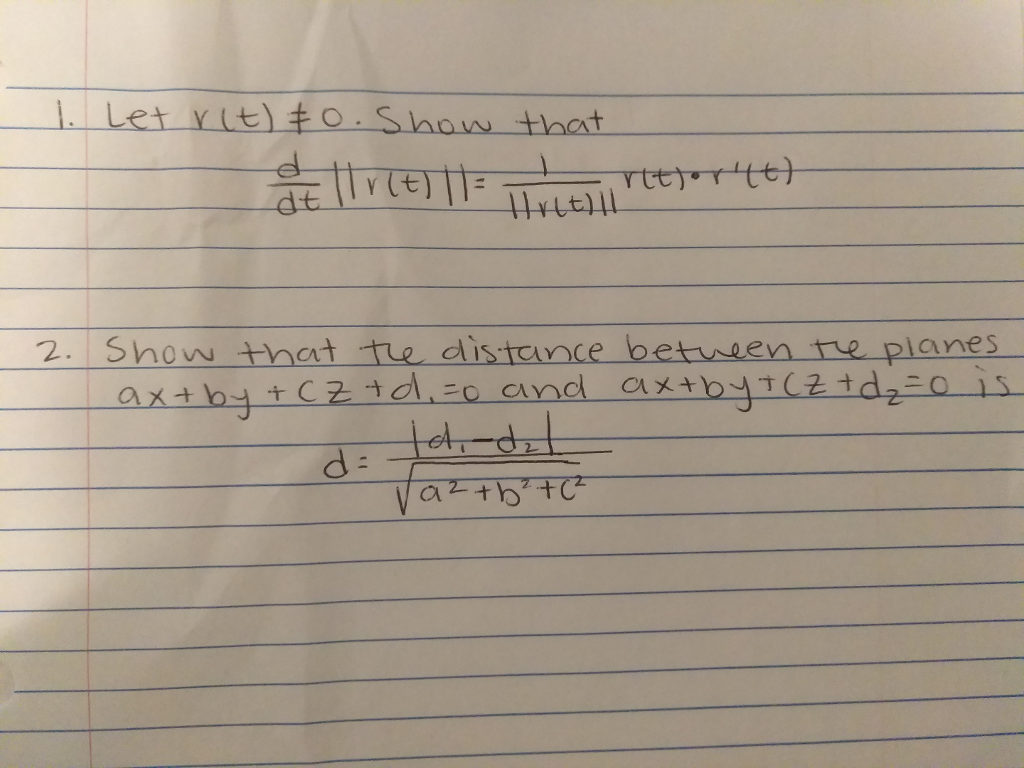 1. Let r(t) ≠ 0. Show that
d/dt ||r(t)|| = 1/||r(t)|| r(t)•r'(t)
2. Show that the distance between the planes
ax+by+cz+d₁=0 and ax+by+cz+d₂=0 is
d = |d₁-d₂|/√a²+b²+c²